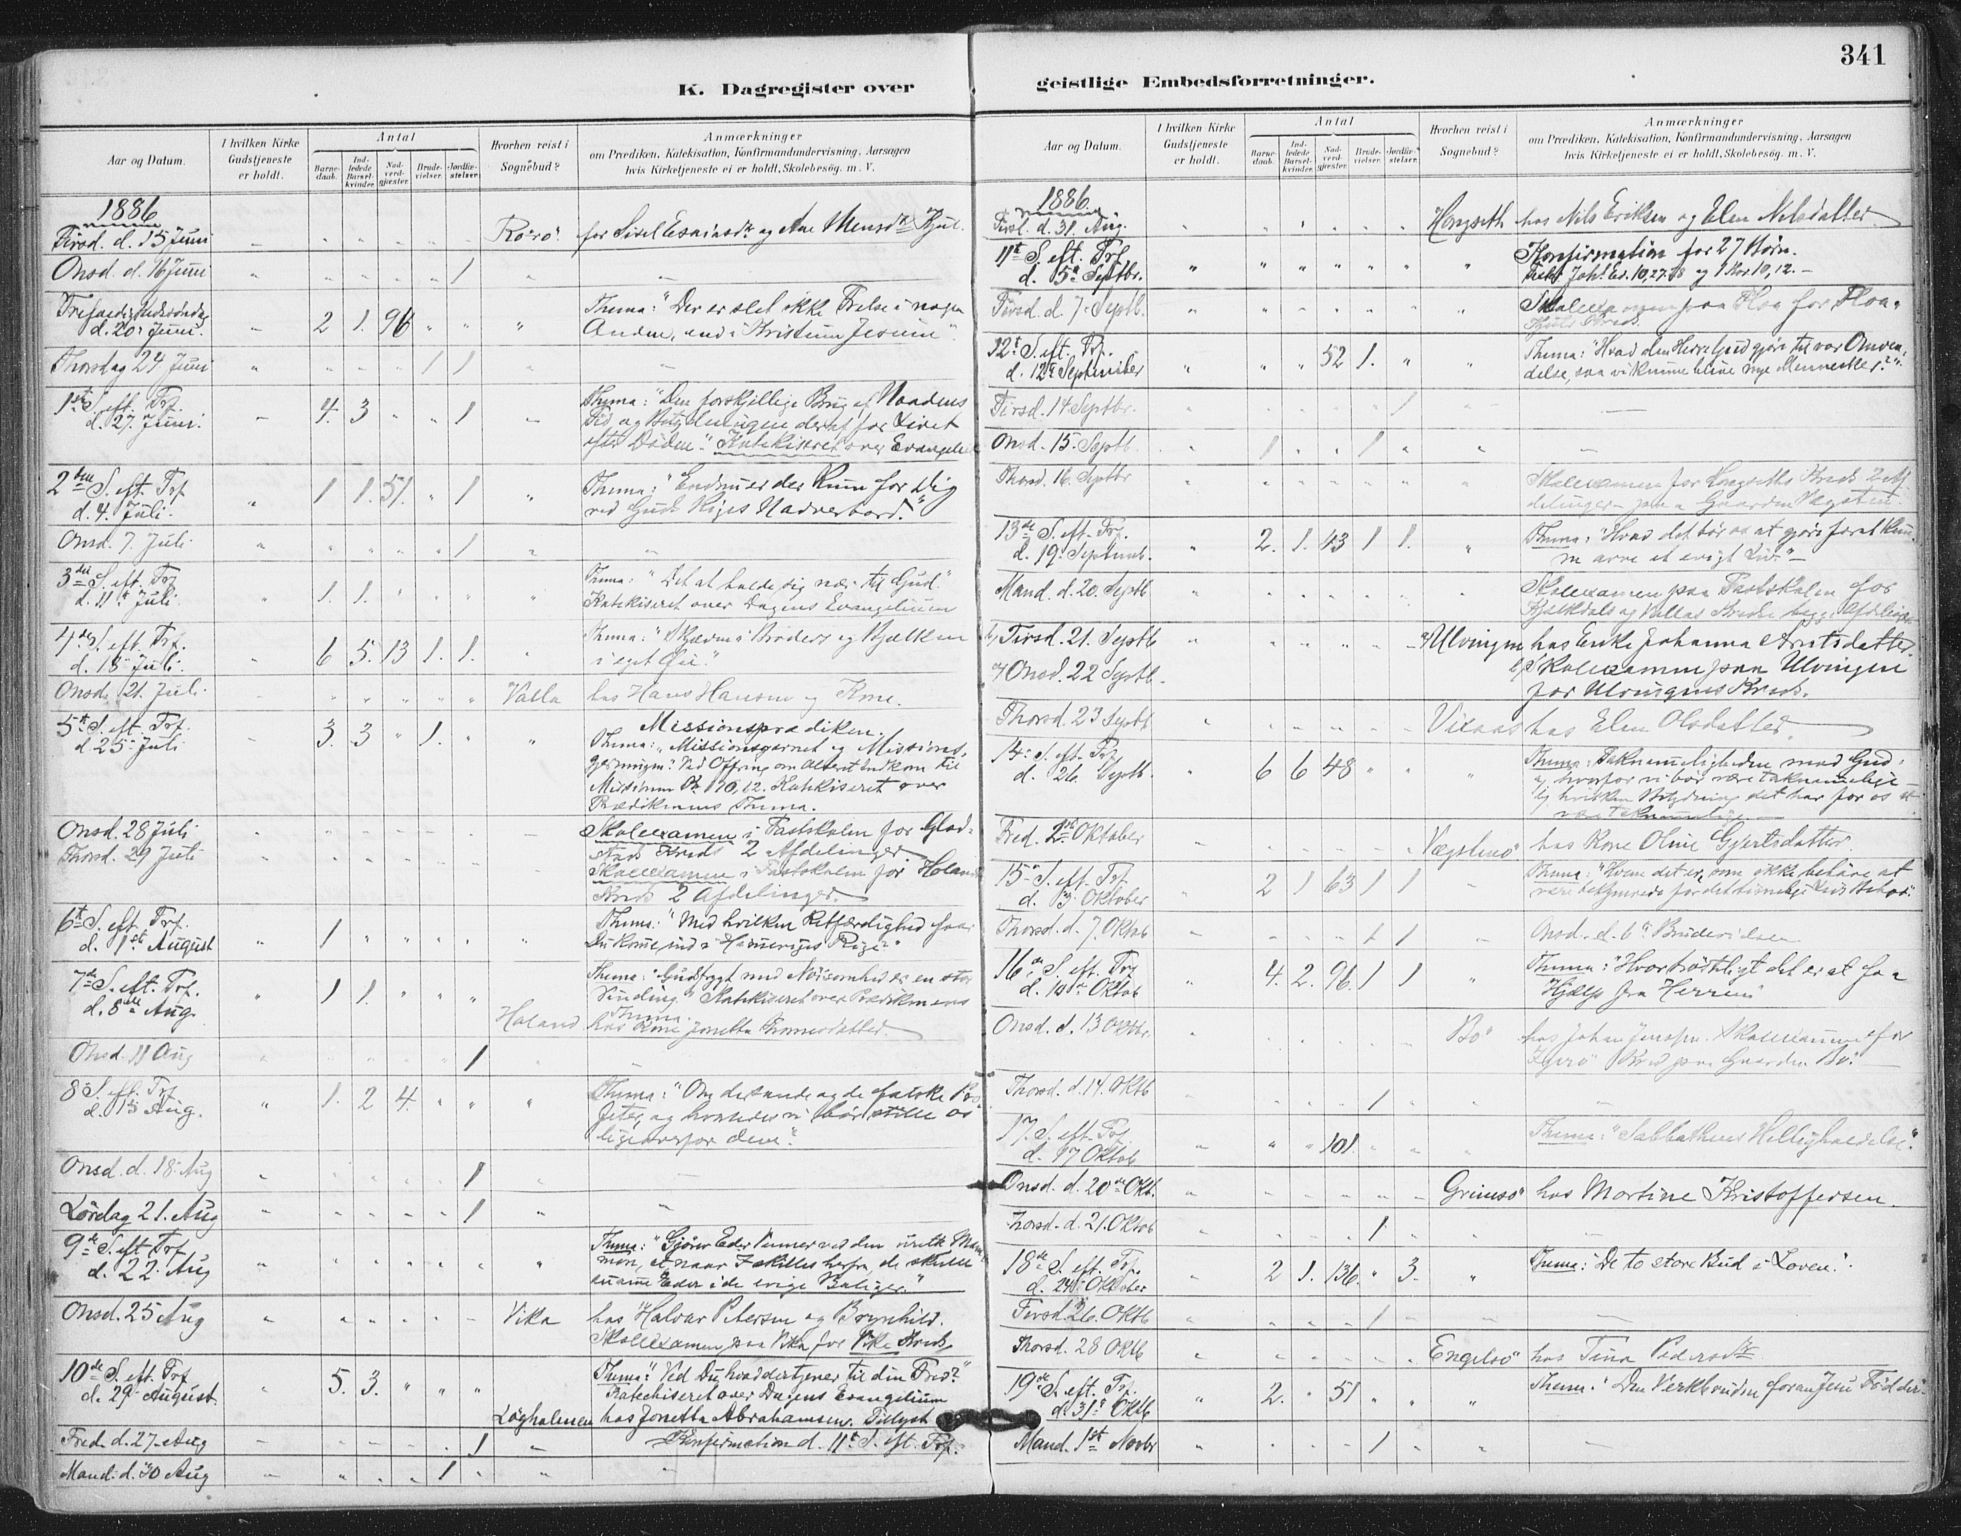 341
K. Dagregister over geistlige Embedsforretninger.
Aar og Datum.
I hvilken Kirke Gudstjeneste er holdt.
Antal
Barnedaab.
Indledede Barselkvinder.
Nadverdgjester.
Brudevielser.
Jordfæstelser.
Hvorhen reist i Sognebud?
Anmærkninger
om Prædiken, Katekisation, Konfirmandundervisning, Aarsagen
hvis Kirketjeneste ei er holdt, Skolebesøg. m. V.
1886
Tirsd. d. 15 Juni " Rörö for Sisel Esaiasd. og Ane Monsd.
Onsd. d. 16 Juni " 1
d. 20 Juni. 2 1. 96 " " Thema: "Der er slet ikke Frelse i nogen
Anden, end i Kristum Jesum".
Thorsdag 24 Juni 1 1
1ste S. eft. Trf.
d. 27. Juni. 4. 3 " 1 Thema: "Den forskjellige Brug af Naadens
Tid og Betydningen deraf for Livet
efter Döden." Katekiseret over Evangeliet
2den S. eft. Trf.
d. 4. Juli. 1 1. 51. " 1 Thema: "Endnu er der Rum for Dig
ved Guds Riges Nadverbord."
Onsd. 7. Juli 1
3die S. eft. Trf
d. 11te Juli 1. 1. Thema: "Det at holde sig nær til Gud."
Katekiseret over Dagens Evangelium
4de S. eft. Trf.
d. 18 Juli. 6 5. 13 1. 1. Thema: "Skjæven i Broders og Bjælken
i eget Öie."
Onsd. 21. Juli. Valla hos Hans Hansen og Kone.
5te S. eft. Trf.
d 25 Juli 3. 3 " 1. Missionsprædiken.
Thema: "Missionsgarnet og Missionsgjerningen." Ved Offring om Alteret indkom til
Missionen Kr. 10,12. Katekiseret over
Prædikenens Thema.
Onsd. 28 Juli Skoleexamen i Fastskolen for
Kreds 2 Afdelinger
Thorsd. 29 Juli Skoleexamen i Fastskolen for Holands
Kreds 2 Afdelinger.
6te S. eft. Trf.
d. 1ste August 1 Thema: "Med hvilken Retfærdighed faar
Du komme ind i Himmeriges Rige?"
7de S. eft. Trf.
d. 8de Aug. 1 1. Thema: "Gudsfrygt med Nöisomhed er en stor
Vinding." Katekiseret over Prædikenens
Thema.
Holand hos Kone Jonetta
Onsd. 11 Aug 1
8de S. eft. Trf
d. 15 Aug. 1. 2 4. Thema: "Om de sande og de falske Profeter, og hvorledes vi bör stille os
ligeoverfor dem".
Onsd. d. 18. Aug 1
Lördag 21. Aug 1
9de S. eft Trf
d. 22. Aug Thema: "Gjörer Eder Venner ved den uretf. Mammon, at naar I skilles herfra, de skulle
annamme Eder i de evige Boliger."
Onsd. 25 Aug Vika hos Halvar Petersen og Brynhild.
Skoleexamen paa Vika for Vika Kreds
10de S. eft. Trf
d. 29. August 5. 3. Thema: "Ved Du hvad der tjener til din Fred?"
Katechiseret over Dagens Evangelium
hos Jonetta Abrahamsen. Tillyst
Konfirmation d. 11te S. eft. Trf.
Fred. d. 27. Aug 1
Mand. d. 30 Aug 1
Aar og Datum.
I hvilken Kirke Gudstjeneste er holdt.
Antal
Barnedaab.
Indledede Barselkvinder.
Nadverdgjester.
Brudevielser.
Jordfæstelser.
Hvorhen reist i Sognebud?
Anmærkninger
om Prædiken, Katekisation, Konfirmandundervisning, Aarsagen
hvis Kirketjeneste ei er holdt, Skolebesøg. m. V.
1886.
Tirsd. d. 31. Aug. Hongseth hos Nils Eriksen og Elen Nilsdatter
11te S. eft. Trf.
d. 5te Septbr. Konfirmation for 27 Börn.
Joh. Ev. 10,27-28 og 1 Kor 10,12. –
Tirsd. d. 7. Septb. Skoleexamen paa Floa for Floa-
Kreds.
12te S. eft. Trf.
d. 12te September 52 1. Thema: "Hvad den Herre Gud gjör til vor Omvendelse, saa vi kunne blive nye Mennesker?"
Tirsd. 14 Septbr. 1
Onsd. 15. Septb. 1 1
Thorsd. 16. Septbr Skoleexamen for Hongseths Kreds 2 Afdelinger paa Gaarden
13de S. eft. Trf.
d. 19. Septemb. 2. 1. 43 1 1. Thema: "Hvad det bör os at gjöre for at kunne arve et evigt Liv." –
Mand. d. 20. Septb Skoleexamen paa Fastskolen for
og Vallas Kreds begge Afdelinger
Tirsd. 21. Septb Ulvingen hos Enke Johanna Arntsdatter.
Onsd. 22 Septb. Skoleexamen paa Ulvingen
for Ulvingens Kreds.
Thorsd. 23 Septb hos Elen Olsdatter
14de S. eft. Trf
d. 26. Septb. 6 6 48 Thema: Taknemmeligheden mod Gud:
og hvorfor vi bör være taknemmelige
og hvilken Betydning det har for os at
være taknemmelige
Fred. 1ste Oktober hos Kone Oline Gjertsdatter.
15de S. eft. Trf.
d. 3. Oktober 2 1 63 1 1 Thema: "Hvem det er, som ikke behöve at
være bekymrede for det timelige Livs Behov."
Thorsd. d. 7. Oktob 1 1 Onsd. d. 6te Brudevielsen
16de S. eft. Trf
d. 10de Oktob 4. 2. 96. 1 1 Thema: "Hvor trösteligt det er at faa
Hjælp fra Herren"
Onsd. d. 13 Oktbr. Bö hos Johan Jensen. Skoleexamen for
Kreds paa Gaarden Bö.
Thorsd. d. 14. Oktb 1
17. S. eft. Trf.
d. 17 Oktob 101. Thema: "Sabbathens Helligholdelse".
Onsd. d. 20de Okt. Grimsö hos Martine Kristoffersen.
Thorsd. d. 21. Oktob 1
18de S. eft. Trf.
d. 24. Oktober 2 1. 136. " 3. Thema: De to store Bud i Loven."
Tirsd. 26. Oktb 1
Thorsd. 28 Oktb Engelsö hos Tina Pedersd.
19de S. eft. Trf.
d. 31te Oktb 2. " 51 Thema: "Den Verkbrudne foran Jesu Födder".
Mand. 1ste Novbr 1